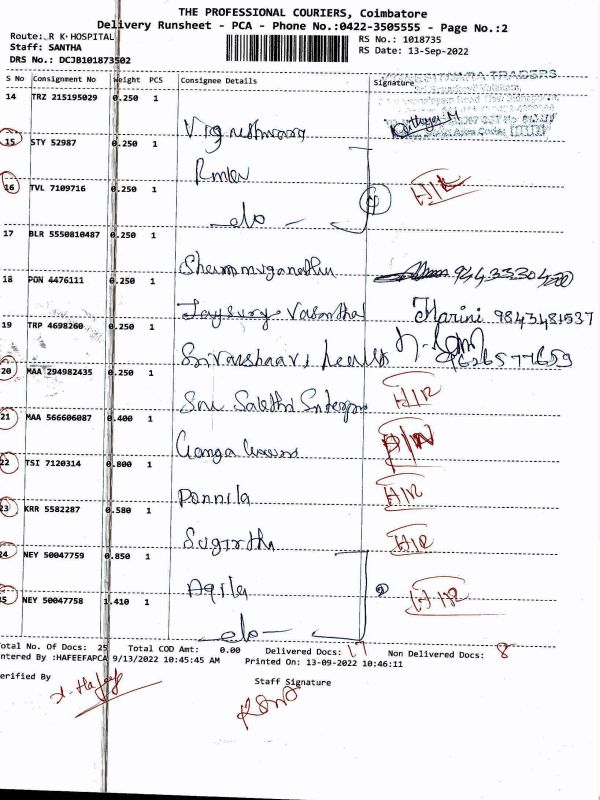 THE PROFESSIONAL COURIERS, Coimbatore
Delivery Runsheet - PCA - Phone No.:0422-3505555 - Page No.:2
Route: R K HOSPITAL
Staff: SANTHA
DRS No.: DCJB101873502
RS No.: 1018735
RS Date: 13-Sep-2022
S No Consignment No Weight PCS Consignee Details Signature
14 TRZ 215195029 0.250 1
Vigneshwara
15 STY 52987 0.250 1
16 TVL 7109716 0.250 1 HIR
-do-
17 BLR 5550810487 0.250 1
Shanmuganathan 9443330420
18 PON 4476111 0.250 1
Jaysurya Vasantha Harini 9843481537
19 TRP 4698260 0.250 1
9626577659
20 MAA 294982435 0.250 1
Sri Sakthi Enterprises HIR
21 MAA 566606087 0.400 1
Ganga D/N
22 TSI 7120314 0.800 1
Ponnila HIR
23 KRR 5582287 0.580 1
Sugirtha HIR
24 NEY 50047759 0.850 1
Aqila
25 NEY 50047758 1.410 1 HIR
-do-
Total No. Of Docs: 25 Total COD Amt: 0.00 Delivered Docs: 17 Non Delivered Docs: 8
Entered By :HAFEEFAPCA 9/13/2022 10:45:45 AM Printed On: 13-09-2022 10:46:11
Verified By Staff Signature